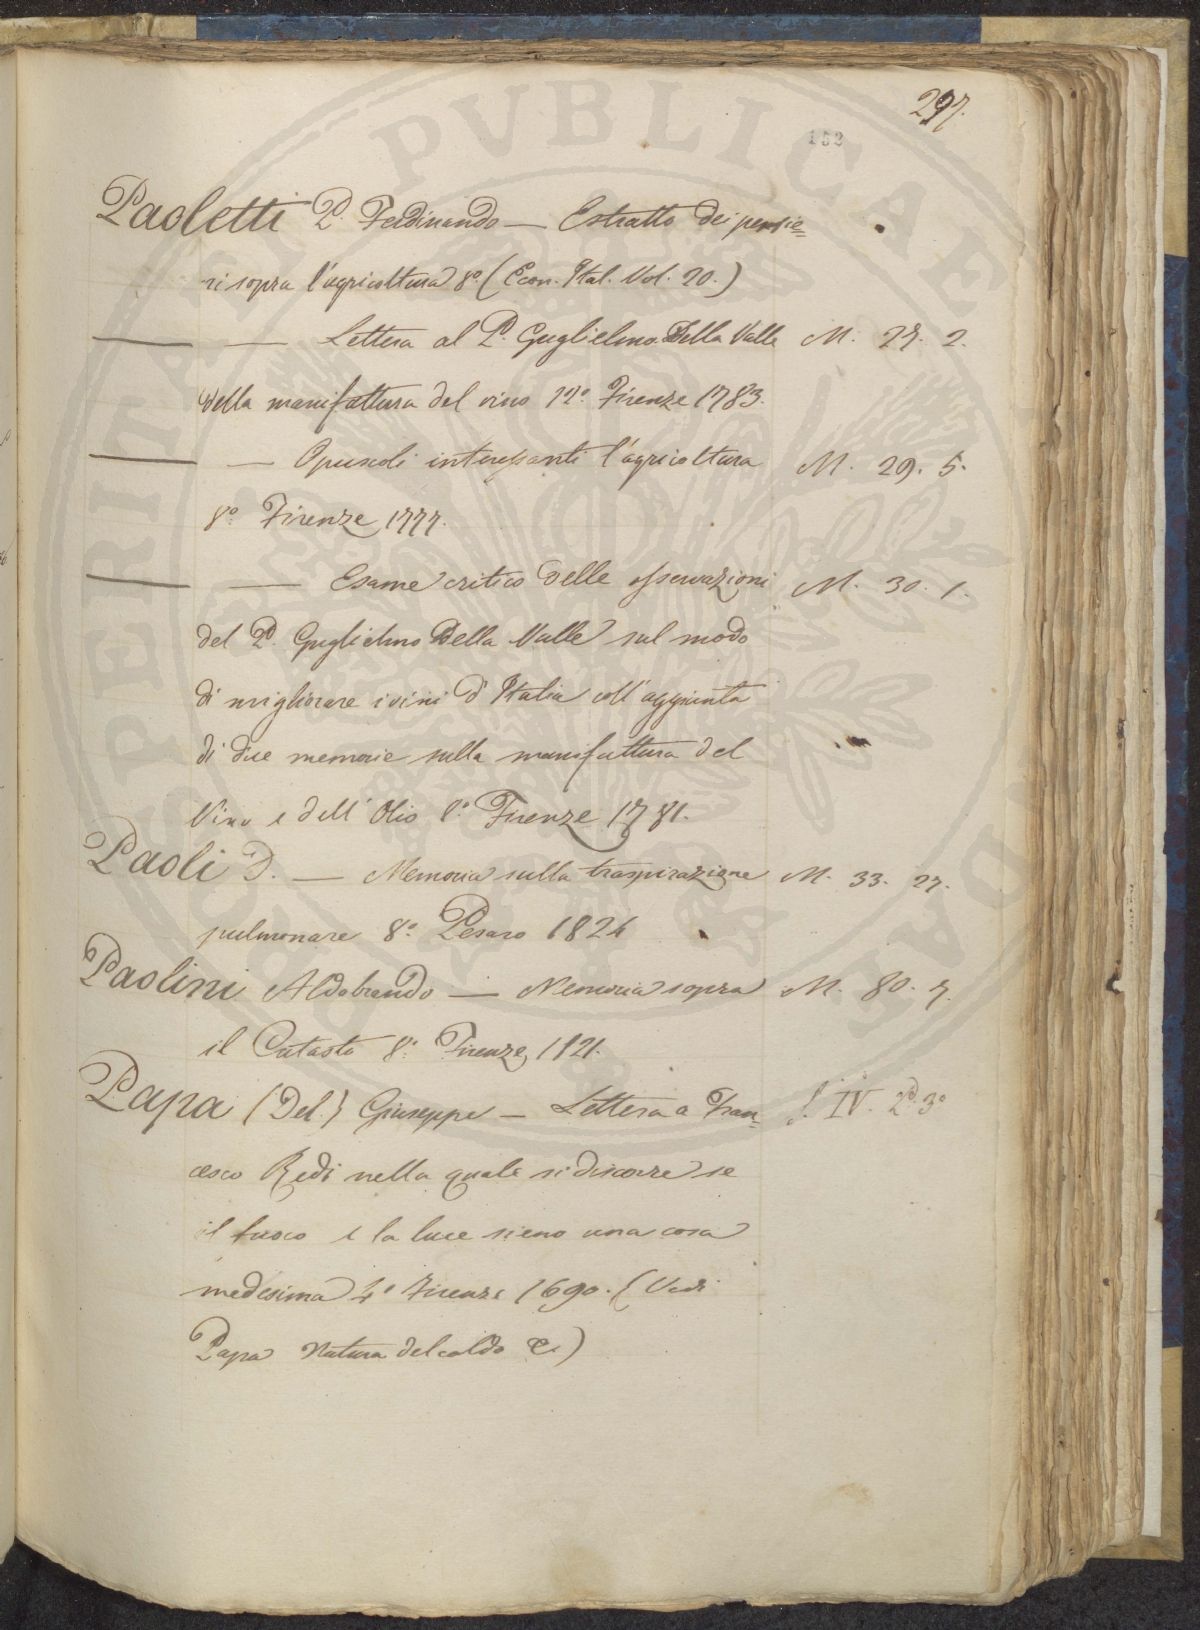 297.
152
Paoletti P. Ferdinando — Estratto dei pensie=
ri sopra l'agricoltura 8º (Econ. Ital. Vol. 20.)
— — Lettera al P. Guglielmo Della Valle M. 27. 2.
della manifattura del vino 12º Firenze 1783.
— — Opuscoli interessanti l'agricoltura M. 29. 5.
8º Firenze 1777.
— — Esame critico delle osservazioni M. 30. 1.
del P. Guglielmo Della Valle sul modo
di migliorare i vini d'Italia coll'aggiunta
di due memorie sulla manifattura del
Vino e dell'Olio 8º Firenze 1781.
Paoli D. — Memoria sulla traspirazione M. 33. 27.
pulmonare 8º Pesaro 1824
Paolini Aldobrando — Memoria sopra M. 80. 7.
il Catasto 8º Firenze 1821.
Papa (Del) Giuseppe — Lettera a Fran= J. IV. 2º. 3º
cesco Redi nella quale si discorre se
il fuoco e la luce sieno una cosa
medesima 4º Firenze 1690. (Vedi
Papa Natura del caldo &.)
PRO VERITATE PVBLICAE